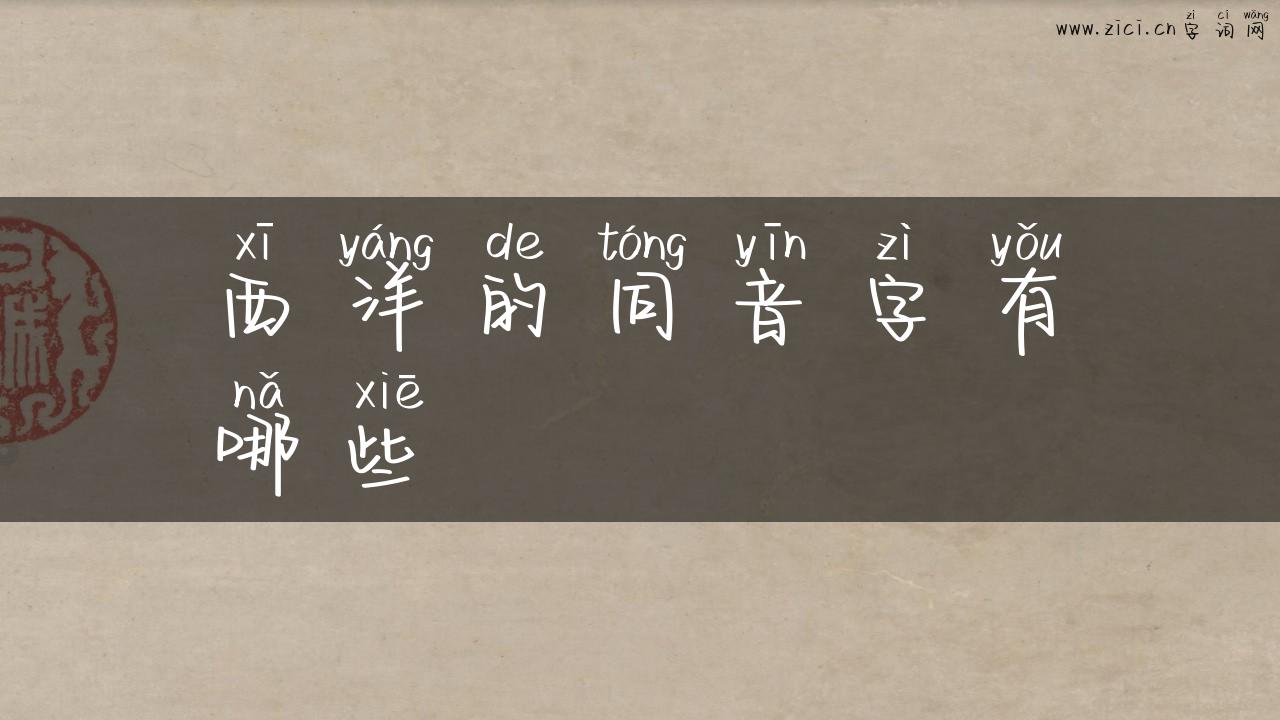 zì cí wǎng
www.zici.cn 字 词 网
xī yáng de tóng yīn zì yǒu
西 洋 的 同 音 字 有
nǎ xiē
哪 些